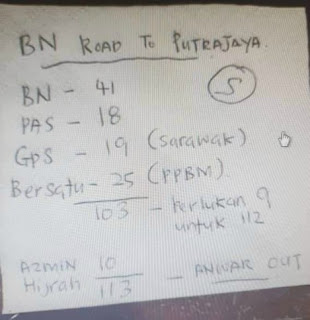 BN ROAD TO PUTRAJAYA.
S
BN - 41
PAS - 18
GPS - 19 (Sarawak)
Bersatu - 25 (PPBM)
103 - Perlukan 9
untuk 112
AZMIN 10
Hijrah 113 - ANWAR OUT